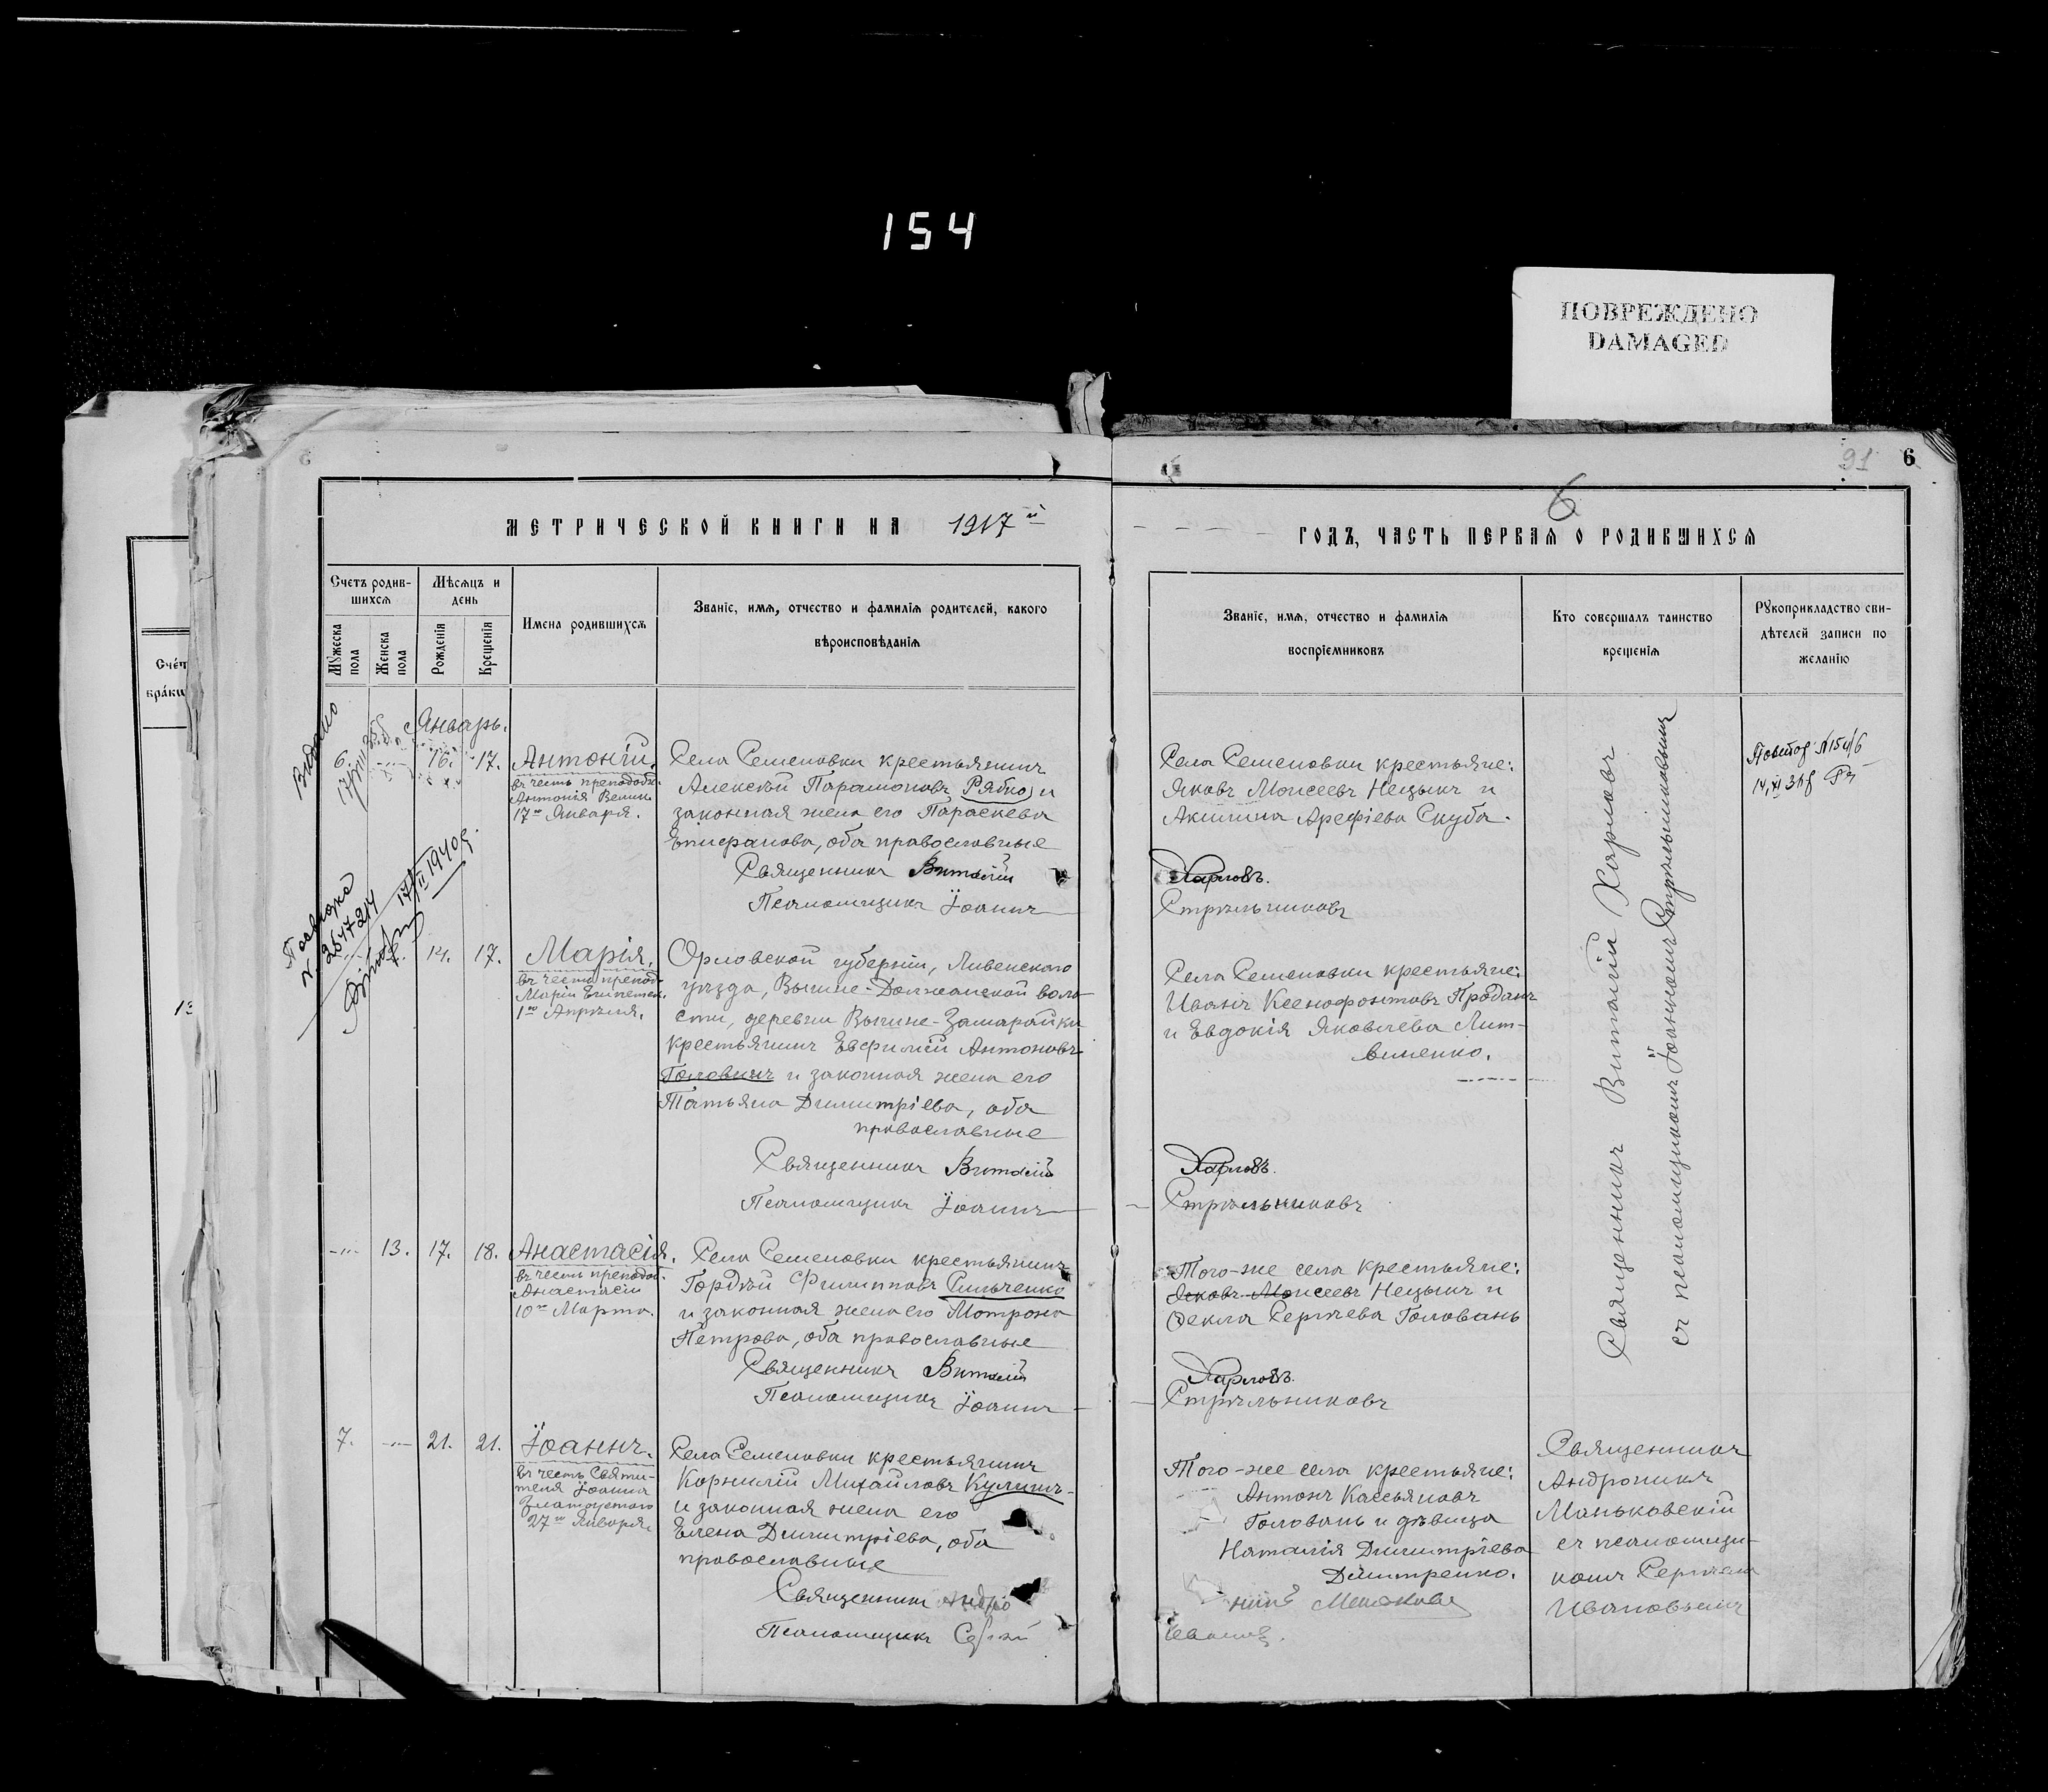 154
ПОВРЕЖДЕНО
DAMAGED
6
91
6
МЕТРИЧЕСКОЙ КНИГИ НА 1917й
ГОДЪ, ЧАСТЬ ПЕРВАЯ О РОДИВШИХСЯ
Счетъ родив-
шихся
Мѣсяцъ и
день
Имена родившихся
Званіе, имя, отчество и фамилія родителей, какого
вѣроисповѣданія
Мужеска пола
Женска пола
Рожденія
Крещенія
Званіе, имя, отчество и фамилія
воспріемниковъ
Кто совершалъ таинство
крещенія
Рукоприкладство сви-
дѣтелей записи по
желанію
Счет
браки
13
Видано
Январь.
6. 16. 17. Антоній.
въ честь преподобн.
Антонія Велик.
17го Января.
Села Семеновки крестьянинъ
Алексѣй Парамоновъ Рябко и
законная жена его Параскева
Епифанова, оба православные
Священникъ Виталій
Псаломщикъ Іоаннъ
Села Семеновки крестьяне:
Яковъ Моисеевъ Нецыкъ и
Акилина Арефіева Скуба.
Харловъ.
Стрѣльниковъ
14. 17. Марія.
въ честь препод.
Маріи Египетск.
1го Апрѣля.
Орловской губерніи, Ливенского
уѣзда, Вышне-Должанской воло
сти, деревни Вышне-Замарайки
крестьянинъ Евфимій Антоновъ
Головинъ и законная жена его
Татьяна Димитріева, оба
православные
Священникъ Виталій
Псаломщикъ Іоаннъ
Села Семеновки крестьяне:
Иванъ Ксенофонтовъ Проданъ
и Евдокія Яковлева Лит-
виненко.
Харловъ.
Стрѣльниковъ
-"- 13. 17. 18. Анастасія.
въ честь преподоб.
Анастасіи
10го Марта.
Села Семеновки крестьянинъ
Гордѣй Филипповъ Сильченко
и законная жена его Матрона
Петрова, оба православные
Священникъ Виталій
Псаломщикъ Іоаннъ
Того-же села крестьяне:
Яковъ Моисеевъ Нецыкъ и
Ѳекла Сергѣева Головань
Харловъ.
Стрѣльниковъ
7. -"- 21. 21. Іоаннъ.
въ честь Святи-
теля Іоанна
Златоустого
27го Января.
Села Семеновки крестьянинъ
Корнилій Михайловъ Кулишъ
и законная жена его
Елена Димитріева, оба
православные
Священникъ Андро
Псаломщикъ Сергѣй
Того-же села крестьяне:
Антонъ Кассьяновъ
Головань и дѣвица
Наталія Димитріева
Дмитренко.
Ивановъ.
Священникъ Виталій Харловъ
съ псаломщикомъ Іоанномъ Стрѣльниковымъ
Священникъ
Андроникъ
Маньковскій
съ псаломщи-
комъ Сергѣемъ
Ивановымъ